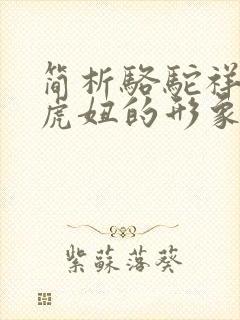 简析骆驼祥
虎妞的形象
紫蘇落葵